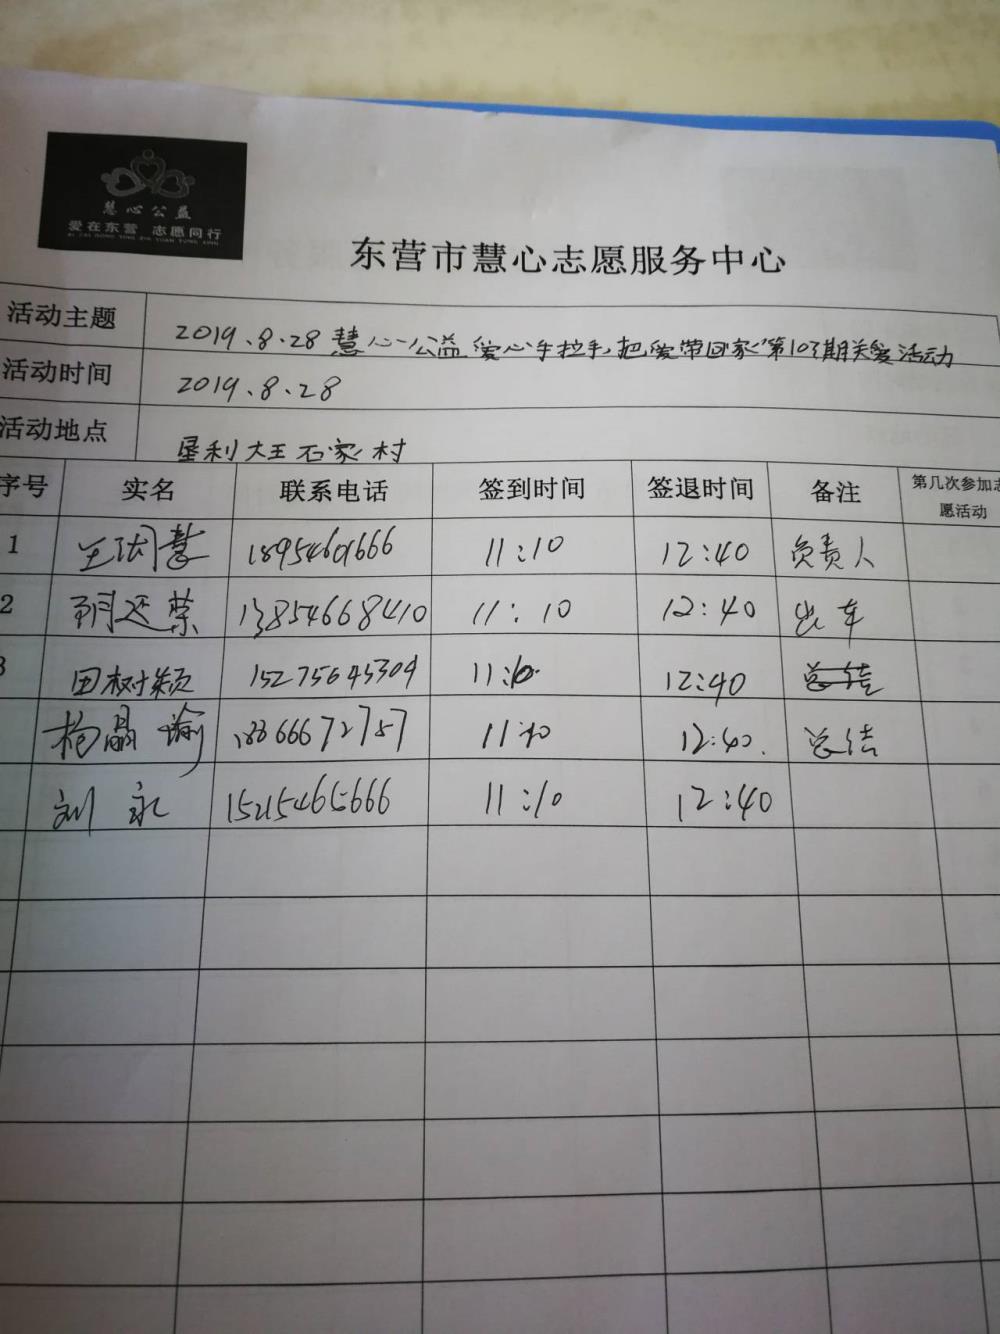 慧心公益
爱在东营 志愿同行
东营市慧心志愿服务中心
活动主题 2019.8.28 慧心公益 爱心手拉手,把爱带回家"第103期关爱活动
活动时间 2019.8.28
活动地点 垦利大王石家村
序号 实名 联系电话 签到时间 签退时间 备注 第几次参加志愿活动
1 王 慧 18954601666 11:10 12:40 负责人
2 荣 13854668410 11:10 12:40 出车
3 田树颖 15275645304 11:10 12:40 总结
杨晶瑜 18866672757 11:10 12:40. 总结
刘永 15215465666 11:10 12:40